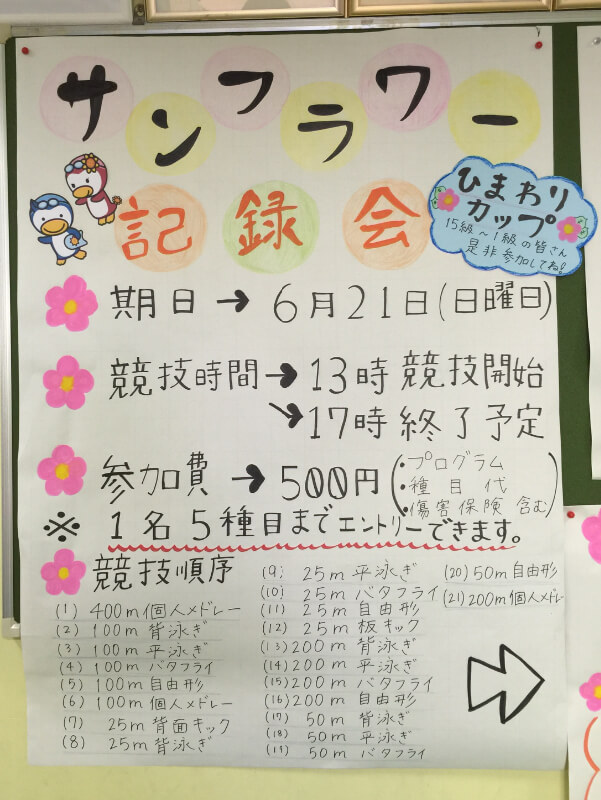 サンフラワー
記録会
ひまわり
カップ
15級～1級の皆さん
是非参加してね!
期日→6月21日(日曜日)
競技時間→13時 競技開始
→17時 終了予定
参加費→500円(・プログラム
・種目代
・傷害保険 含む)
※1名5種目までエントリーできます。
競技順序
(1) 400m個人メドレー
(2) 100m背泳ぎ
(3) 100m平泳ぎ
(4) 100mバタフライ
(5) 100m自由形
(6) 100m個人メドレー
(7) 25m背面キック
(8) 25m背泳ぎ
(9) 25m平泳ぎ
(10) 25mバタフライ
(11) 25m自由形
(12) 25m板キック
(13) 200m背泳ぎ
(14) 200m平泳ぎ
(15) 200mバタフライ
(16) 200m自由形
(17) 50m背泳ぎ
(18) 50m平泳ぎ
(19) 50mバタフライ
(20) 50m自由形
(21) 200m個人メドレー